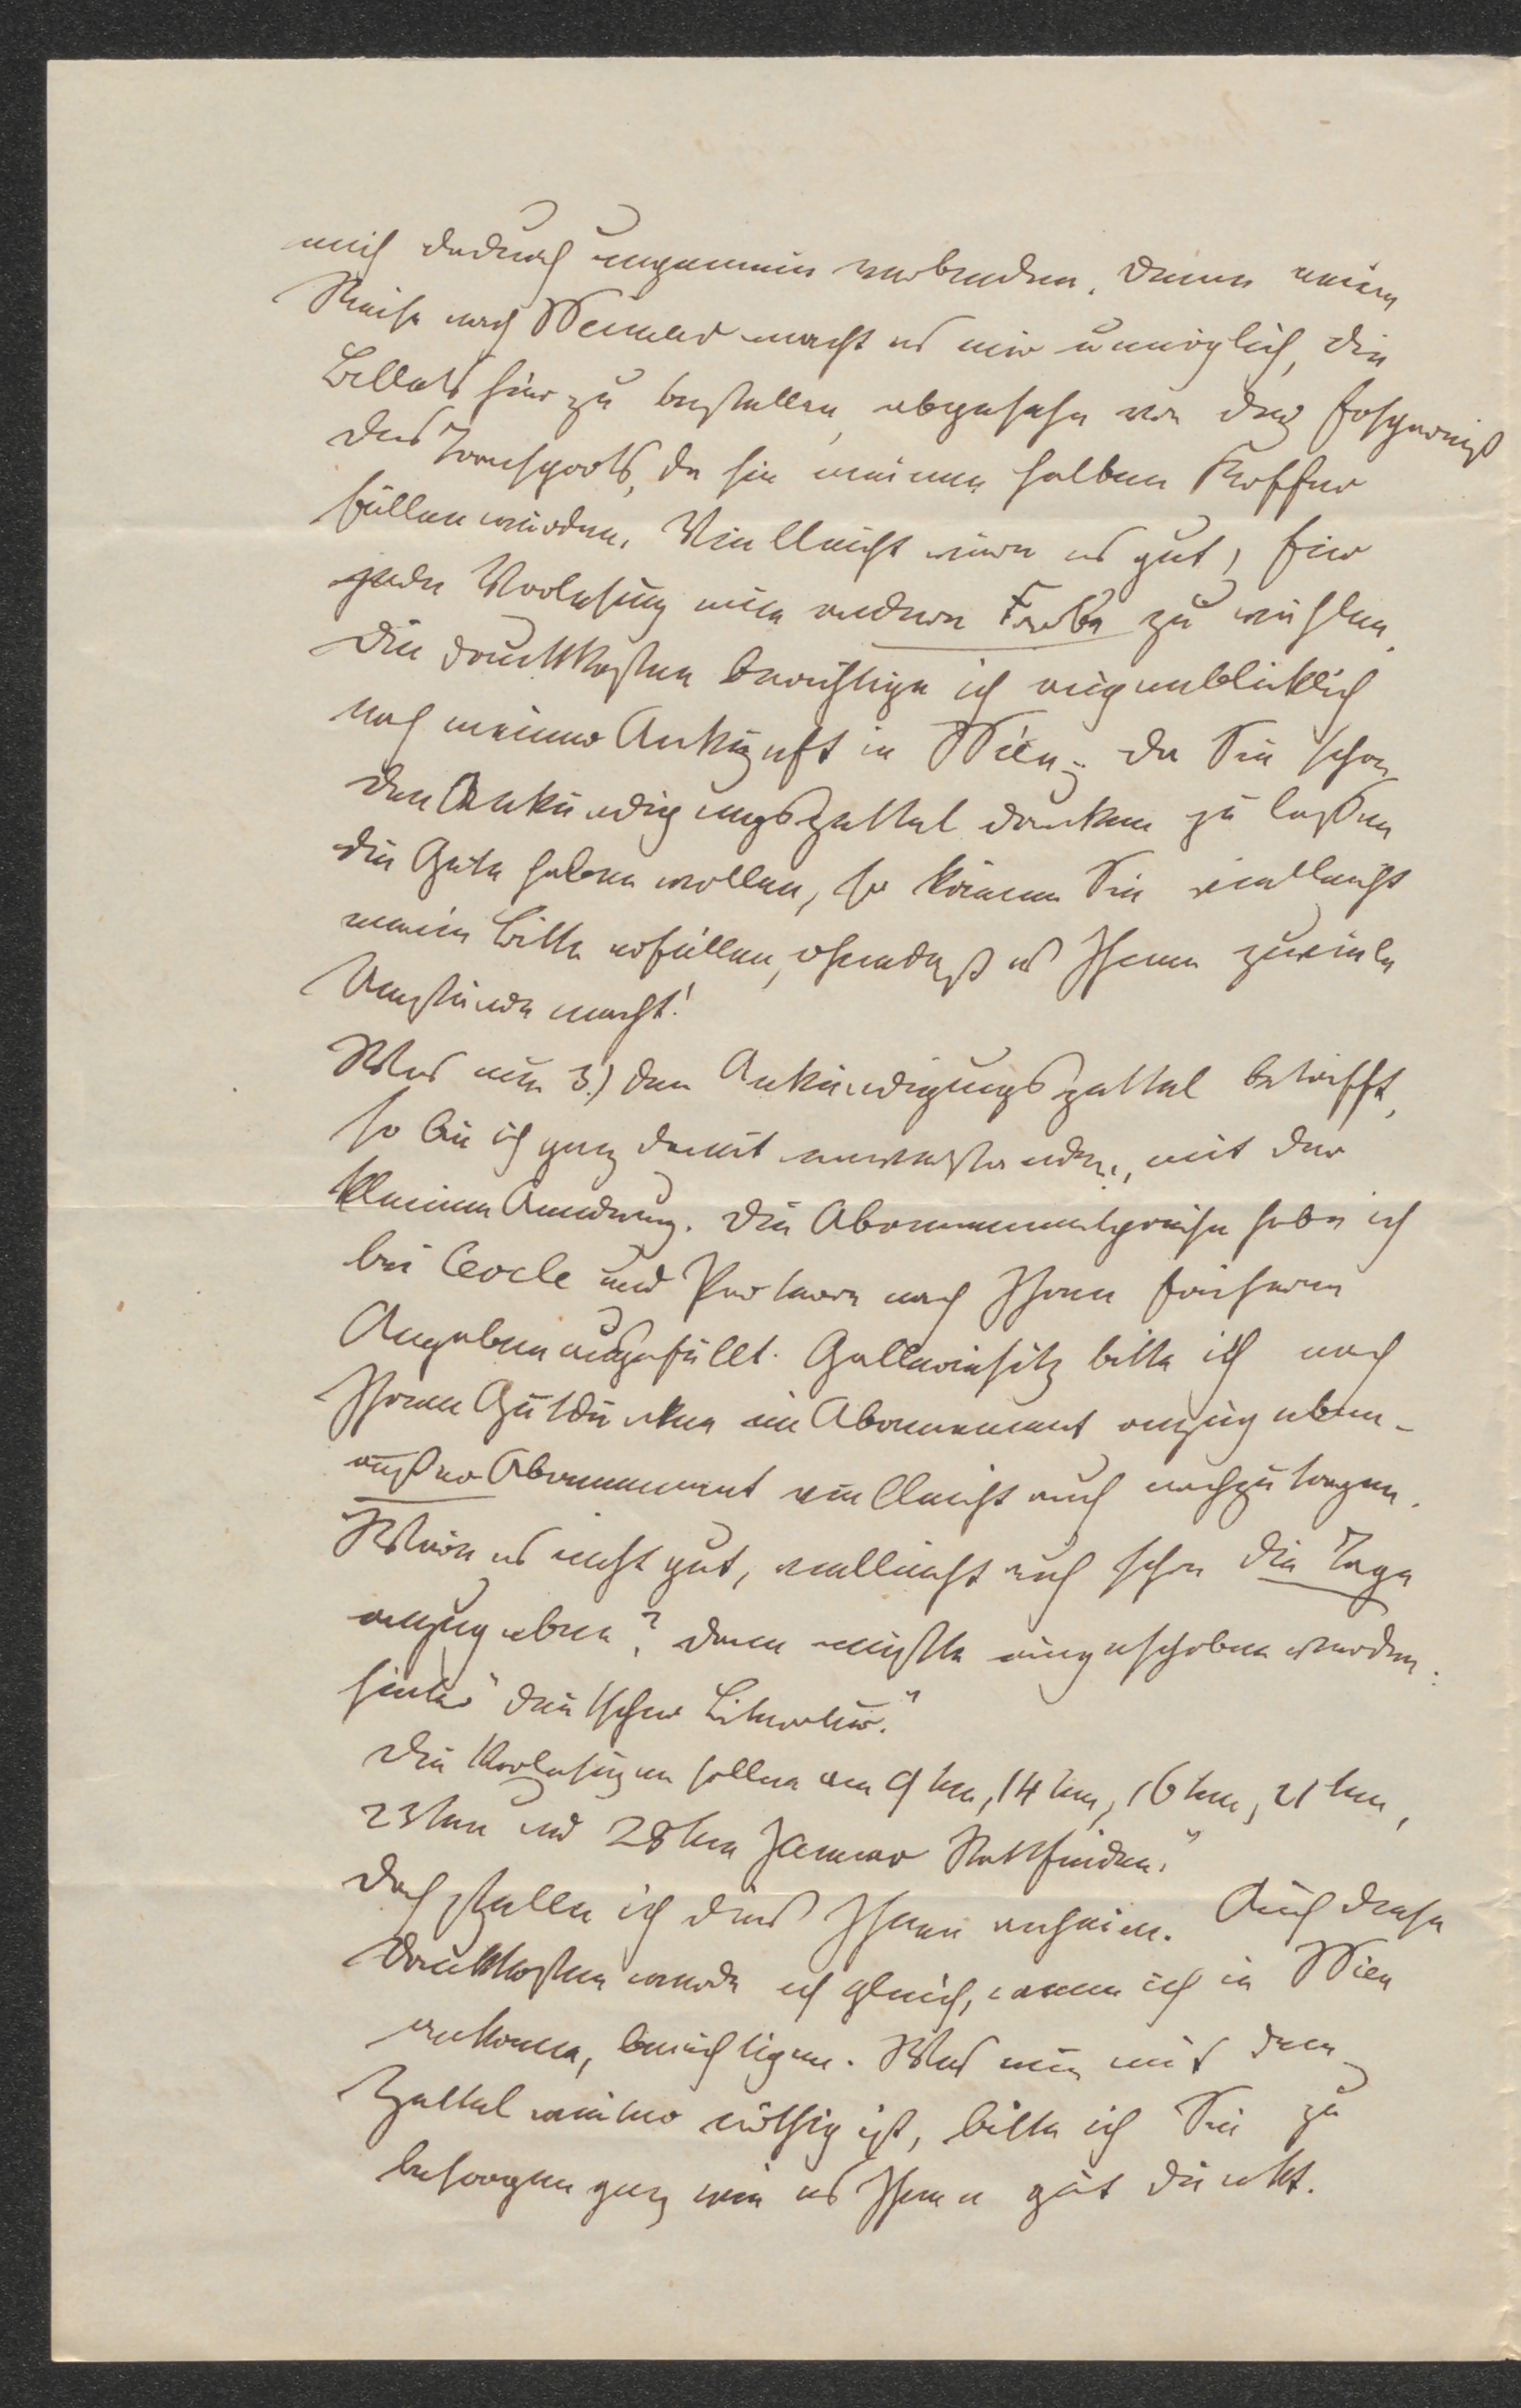 mich dadurch ungemein verbinden. Denn meine
Reise nach Weimar macht es mir unmöglich, die
Billets hier zu bestellen, abgesehn von der Ersparniß
des Transports, da sie meinen halben Koffer
füllen würden. Vielleicht wäre es gut, für
jede Vorlesung eine andere Farbe zu wählen.
Die Druckkosten berichtige ich augenblicklich
nach meiner Ankunft in Wien; da Sie schon
den Ankündigungszettel drucken zu laßen
die Güte haben wollen, so können Sie vielleicht
meine Bitte erfüllen, ohnedaß es Ihnen zuviele
Umstände macht!
Was nun 3.) den Ankündigungszettel betrifft,
so bin ich ganz damit einverstanden, mit der
kleinen Aenderung. Die Abonnementspreise habe ich
bei Cercle und Parterre nach Ihren früheren
Angaben ausgefüllt. Galleriesitz bitte ich nach
Ihrem Gutdünken im Abonnement anzugeben –
außer Abonnement vielleicht auch nachzutragen.
Wäre es nicht gut, vielleicht auch schon die Tage
anzugeben? dann müßte eingeschoben werden:
hinter "deutscher Literatur."
Die Vorlesungen sollen am 9ten, 14ten, 16ten, 21ten,
23ten und 28ten Januar stattfinden."
Doch stelle ich dies Ihnen anheim. Auch diese
Druckkosten werde ich gleich, wenn ich in Wien
ankomme, berichtigen. Was nun mit dem
Zettel weiter nöthig ist, bitte ich Sie zu
besorgen ganz wie es Ihnen gut dünkt.